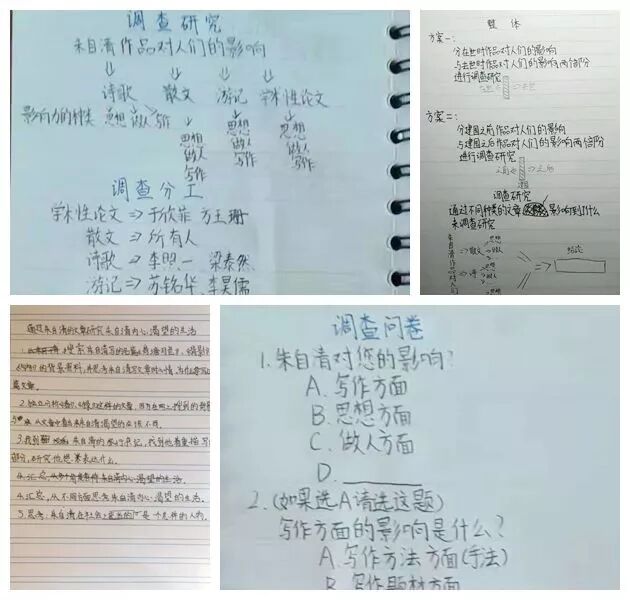 调查研究
朱自清作品对人们的影响
诗歌 散文 游记 学术性论文
影响力的种类 思想 做人 写作
思想 做人 写作
思想 做人 写作
思想 做人 写作
调查分工
学术性论文⇒于欣菲 方王珊
散文⇒所有人
诗歌⇒李照一 梁泰然
游记⇒苏铭华、李昊儒
整体
方案一:
分在世时作品对人们的影响
与去世时作品对人们的影响两个部分
进行调查研究
方案二:
分建国之前作品对人们的影响
与建国之后作品对人们的影响两个部分
进行调查研究
之前 之后
建国
调查研究
通过不同种类的文章 影响到了什么
来调查研究
朱自清作品对人们
散文 思想 做人
诗
结论
通过朱自清的文章研究朱自清内心渴望的生活
的背景资料
篇文章。
从文中看出朱自清渴望的生活不同。
3.找到 朱自清的 游记,找到他着重描写
部分,研究他想表达什么。
4.汇总,从不同方面思考朱自清内心渴望的生活。
5.思考:朱自清在社会 是一个怎样的人物。
调查问卷
1.朱自清对您的影响?
A.写作方面
B.思想方面
C.做人方面
D.
2.(如果选A请选这题)
写作方面的影响是什么?
A.写作方法方面(手法)
B.写作题材方面